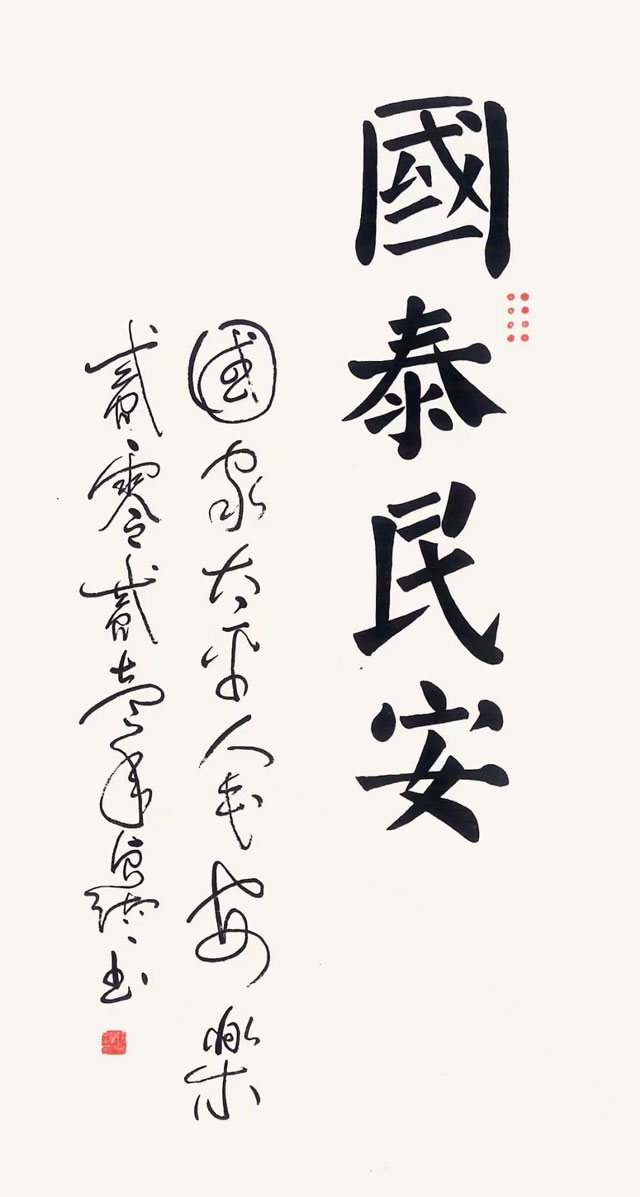 國泰民安
国家太平人民安樂
貳零貳壹年
书